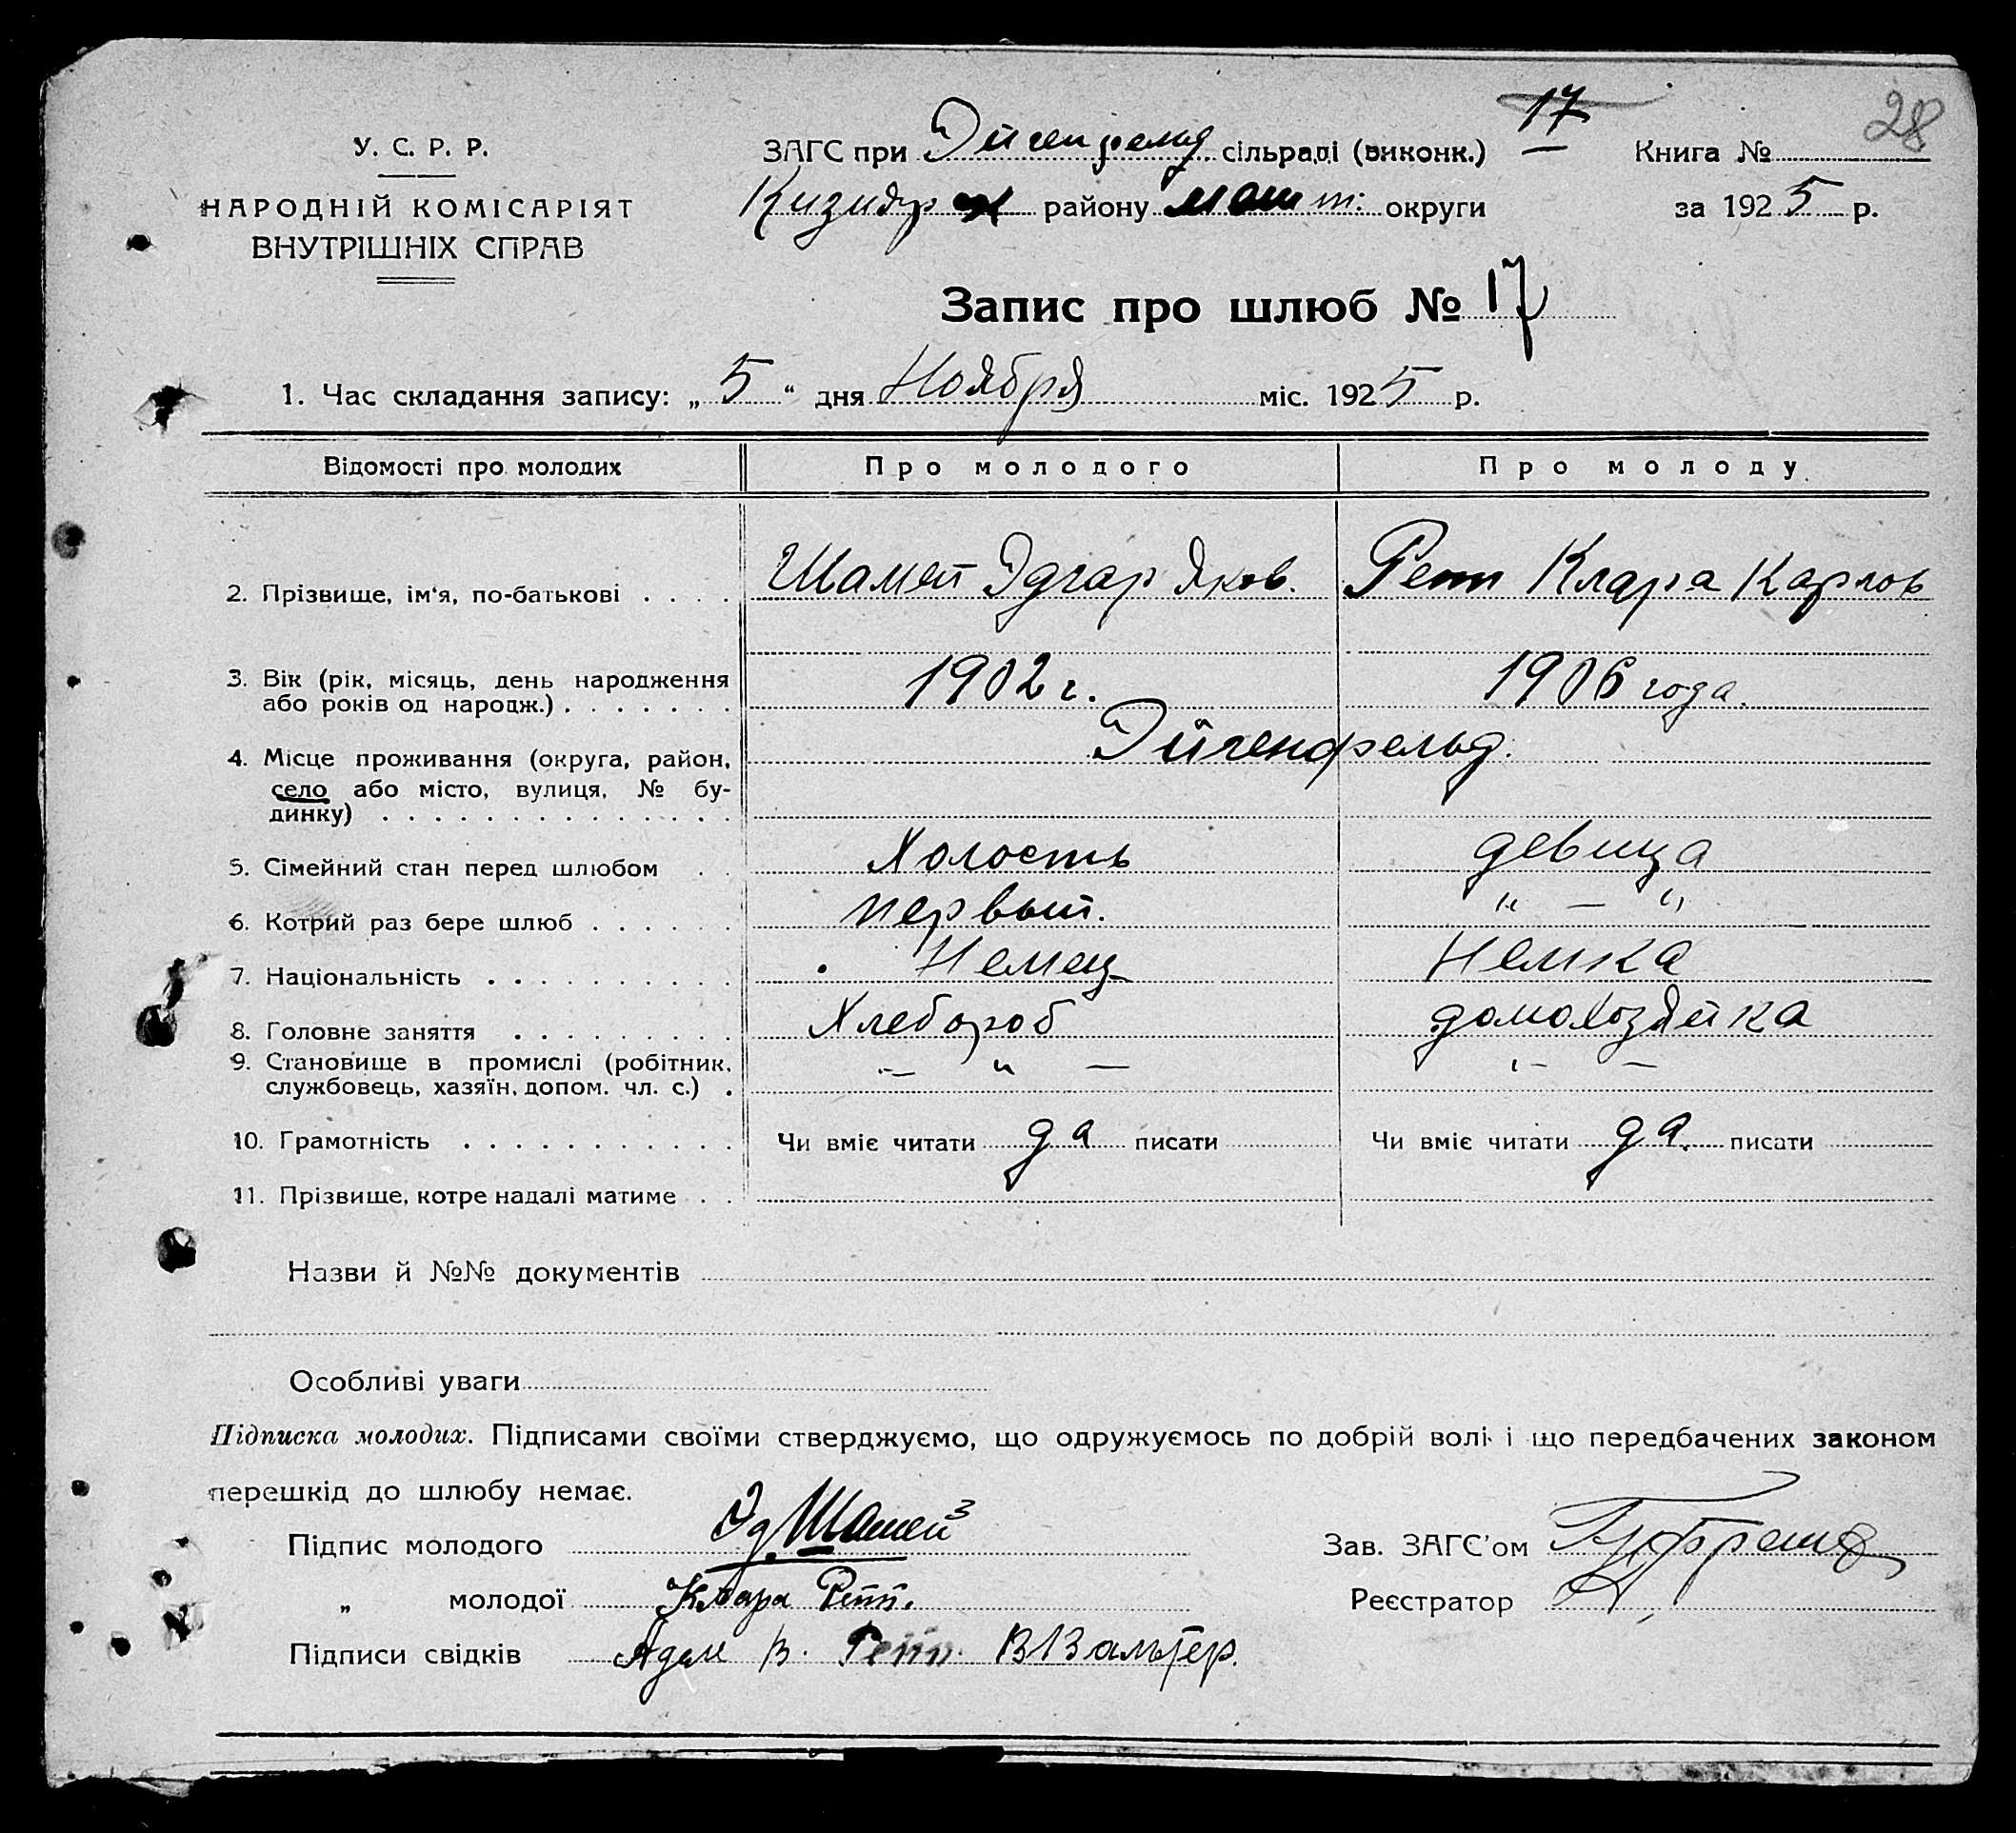 17
28
У. С. Р. Р.
НАРОДНІЙ КОМІСАРІЯТ
ВНУТРІШНІХ СПРАВ
ЗАГС при Эйгенфельд сільраді (виконк.)
Книга №
району округи
за 1925 р.
Запис про шлюб № 17
1. Час складання запису: „ 5 “ дня Ноября міс. 1925 р.
Відомості про молодих Про молодого Про молоду
2. Прізвище, ім'я, по-батькові . . . . Эдгар Яков. Репп Клара Карлов
3. Вік (рік, місяць, день народження
або років од народж.) . . . . . . . 1902 г. 1906 года.
4. Місце проживання (округа, район, Эйгенфельд.
село або місто, вулиця, № бу-
динку) . . . . . . . . . . . . . .
5. Сімейний стан перед шлюбом . . Холость девица
6. Котрий раз бере шлюб . . . . . . первый. „ — „
7. Національність . . . . . . . . . . Немец Немка
8. Головне заняття . . . . . . . . . Хлебороб домохозяйка
9. Становище в промислі (робітник,
службовець, хазяїн, допом. чл. с.) . — „ — „ — —
10. Грамотність . . . . . . . . . . . Чи вміє читати да писати Чи вміє читати да. писати
11. Прізвище, котре надалі матиме . .
Назви й №№ документів
Особливі уваги
Підписка молодих. Підписами своїми стверджуємо, що одружуємось по добрій волі і що передбачених законом
перешкід до шлюбу немає.
Підпис молодого Эд.
Зав. ЗАГС'ом
„ молодої Клара Репп.
Реєстратор
Підписи свідків Адам В. Репп. В Вальтер.